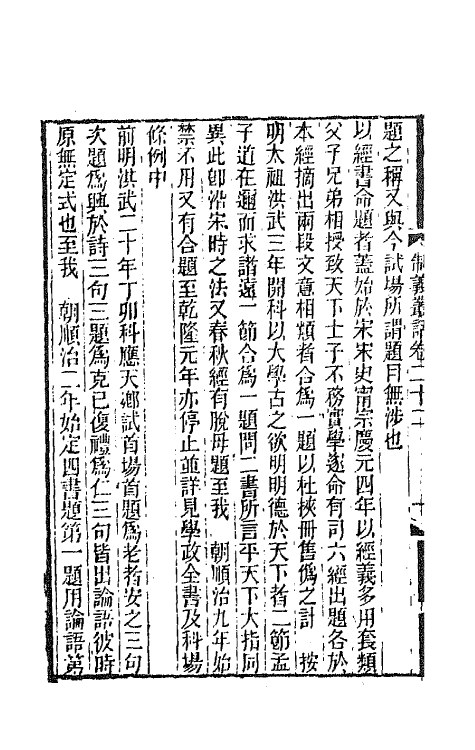 題之稱又與今試塲所謂題目無涉也
以經書命題者蓋始於宋宋史甯宗慶元四年以經義多用套類
父子兄弟相授致天下士子不務實學遂命有司六經出題各於
本經摘出兩段文意相類者合爲一題以杜挾冊舊僞之計　按
明太祖洪武三年開科以大學古之欲明明德於天下者二節孟
子道在邇而求諸遠一節合爲一題問二書所言平天下大指同
異此卽沿宋時之法又春秋經有脫母題至我　朝順治九年始
禁不用又有合題至乾隆元年亦停止並詳見學政全書及科場
條例中
前明洪武二十年丁卯科應天鄉試首場首題爲老者安之三句
次題爲興於詩三句三題爲克己復禮爲仁三句皆出論語彼時
原無定式也至我　朝順治二年始定四書題第一題用論語第
制義叢話卷二十二